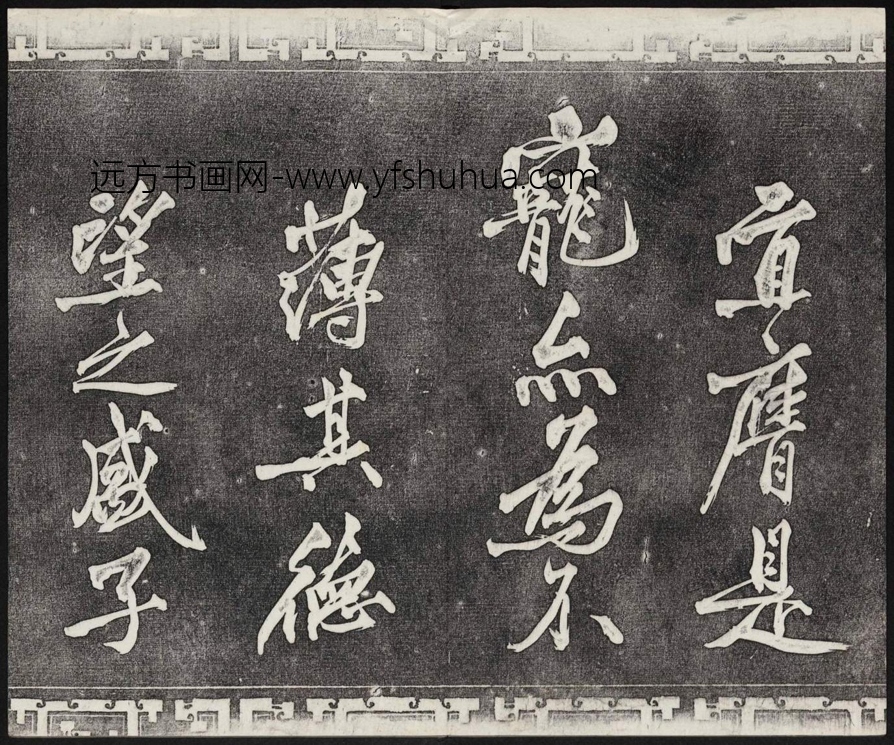 宜膺是
寵亦為不
薄其德
望之盛子
远方书画网-www.yfshuhua.com